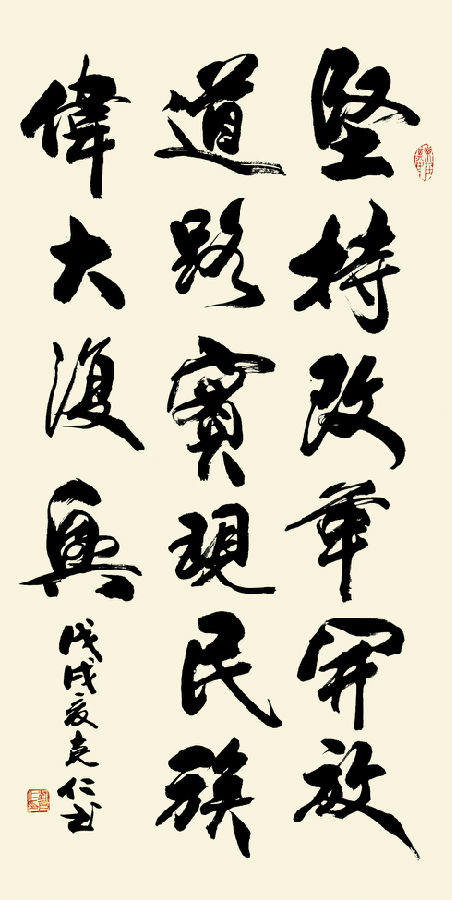 堅持改革開放
道路實現民族
偉大復興
戊戌夏克仁书